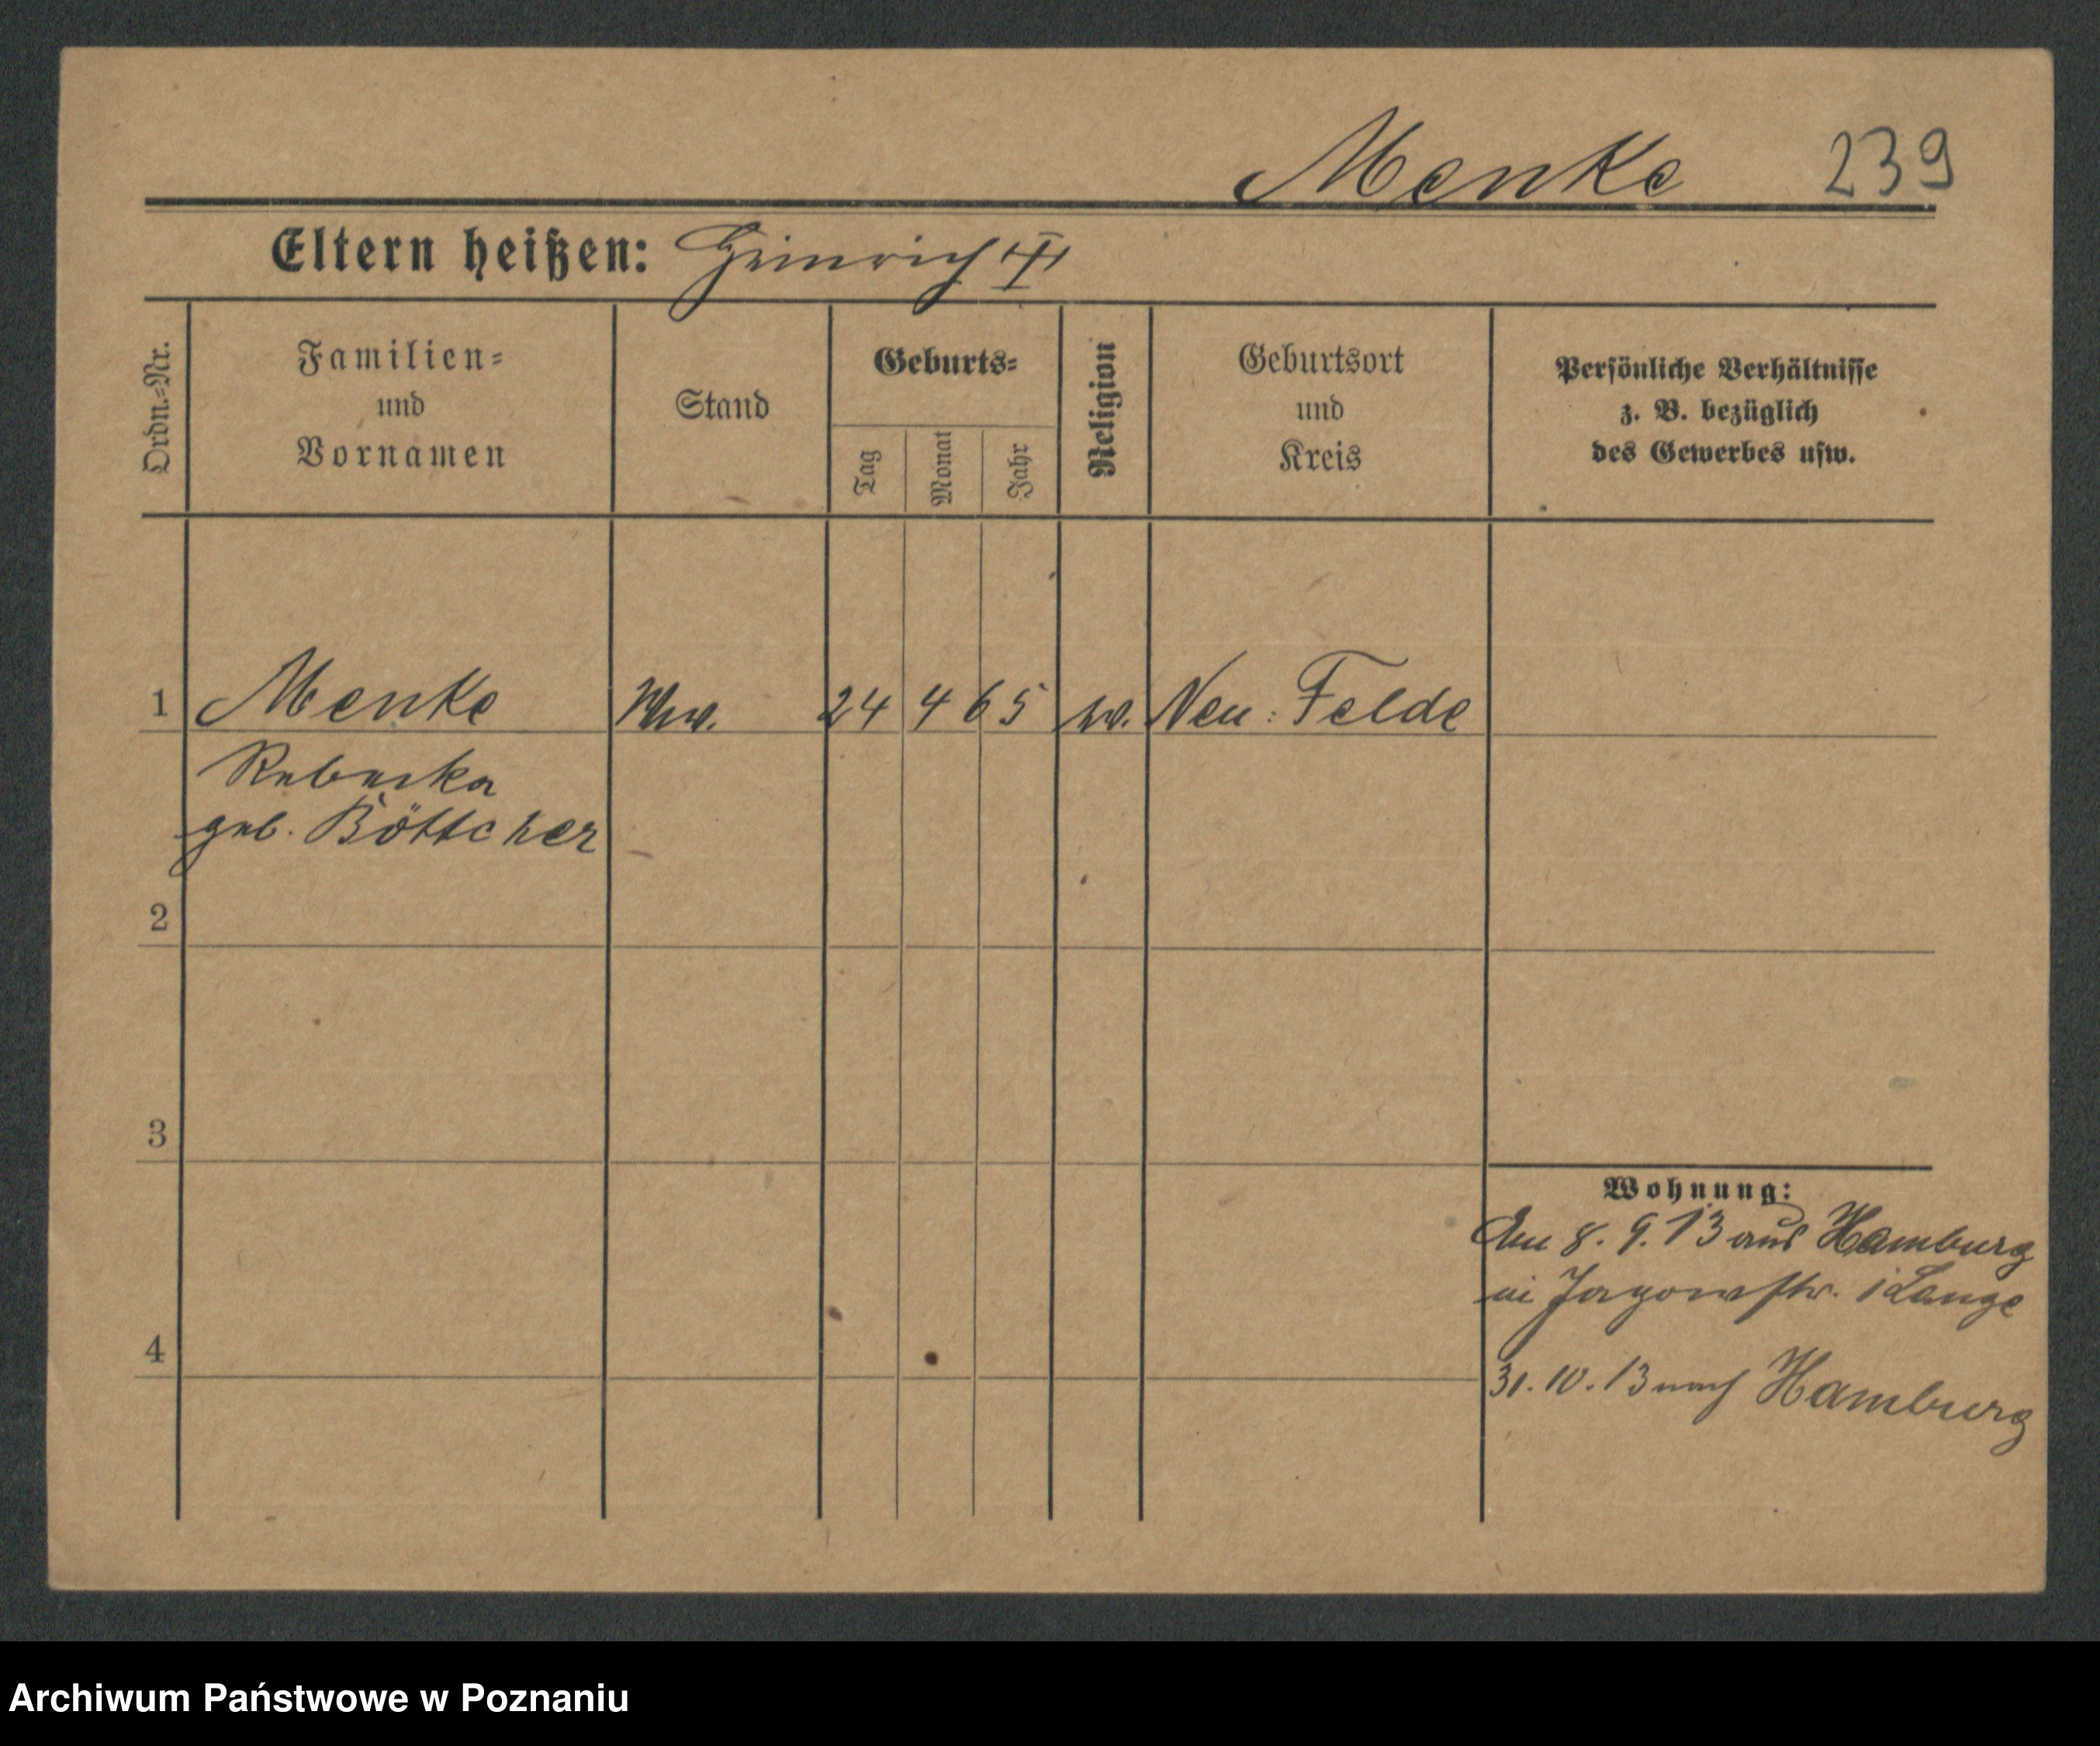 Menke 239
Eltern heißen: Heinrich
Ordn.-Nr.
Familien-
und
Vornamen
Stand
Geburts-
Tag
Monat
Jahr
Religion
Geburtsort
und
Kreis
Persönliche Verhältnisse
z. B. bezüglich
des Gewerbes usw.
1 Menke Ww. 24 4 65 Neu-Felde
Rebecka
geb. Böttcher
2
3
4
Wohnung:
8. 9. 13 aus Hamburg
in Jagowstr. Lange
31. 10. 13 nach Hamburg
Archiwum Państwowe w Poznaniu